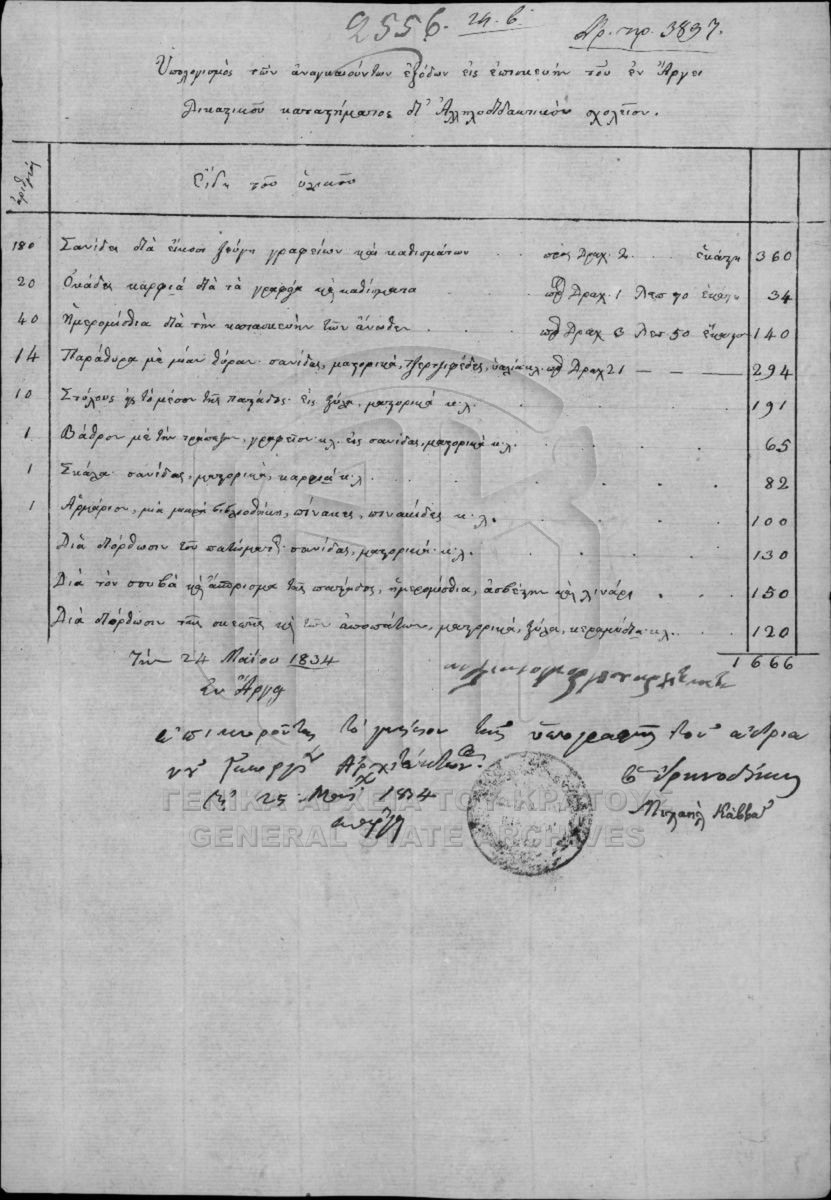 2556. 24. 6. Ἀρ. πρ. 3897.
Ὑπολογισμὸς τῶν ἀναγκαιούντων ἐξόδων εἰς ἐπισκευὴν τοῦ ἐν Ἄργει
διὰ Ἀλληλοδιδακτικὸν σχολεῖον.
ἀριθμὸς Εἴδη τοῦ ὑλικοῦ
180 Σανίδες διὰ εἴκοσι ζεύγη γραφείων καὶ καθισμάτων πρὸς Δραχ. 2 ἑκάστη 360
20 Ὀκάδες καρφιά διὰ τὰ γραφεῖα καὶ καθίσματα πρὸς Δραχ. 1 Λεπ 70 ἑκάστη 34
40 Ἡμερομίσθια διὰ τὴν κατασκευὴν τῶν ἄνωθεν πρὸς Δραχ 3 Λεπ 50 ἕκαστον 140
14 Παράθυρα μὲ μίαν θύραν σανίδας, μαστορικά, ὑαλία κ.λ. πρὸς Δραχ 21 — — — 294
10 Στύλους εἰς τὸ μέσον τῆς εἰς ξύλα, μαστορικά κ.λ. 191
1 Βάθρον μὲ τὴν τράπεζαν, γραφεῖον κ.λ. εἰς σανίδας, μαστορικά κ.λ. 65
1 Σκάλα σανίδας, μαστορικά, καρφιά κ.λ. 82
1 Ἀρμάριον, μία μικρὰ βιβλιοθήκη, πίνακες, πινακίδες κ.λ. 100
Διὰ διόρθωσιν τοῦ πατώματος σανίδας, μαστορικά κ.λ. 130
Διὰ τὸν σουβᾶ καὶ τῆς ἡμερομίσθια, ἀσβέστην καὶ λινάρι 150
Διὰ διόρθωσιν τῆς σκεπῆς καὶ τῶν ἀποπάτων, μαστορικά, ξύλα, κεραμύδια κ.λ. 120
1666
Τὴν 24 Μαΐου 1834
Ἐν Ἄργει
ἐπικυροῦται τὸ γνήσιον τῆς ὑπογραφῆς τοῦ
Γεωργίου Ἀρχιτέκτων
25 1834
ὁ Εἰρηνοδίκης
ΓΕΝΙΚΑ ΑΡΧΕΙΑ ΤΟΥ ΚΡΑΤΟΥΣ
GENERAL STATE ARCHIVES